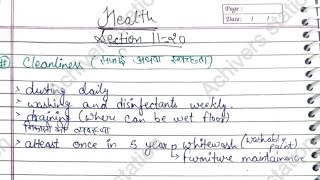 Health
Page :
Date : / /
Section 11-20
# Cleanliness (सफाई अथवा स्वच्छता)
> dusting daily
> washing and disinfectants weekly.
> draining (where can be wet floor)
निकासी की व्यवस्था
> atleast once in 5 year whitewash (washable paint)
furniture maintainence
Achivers station